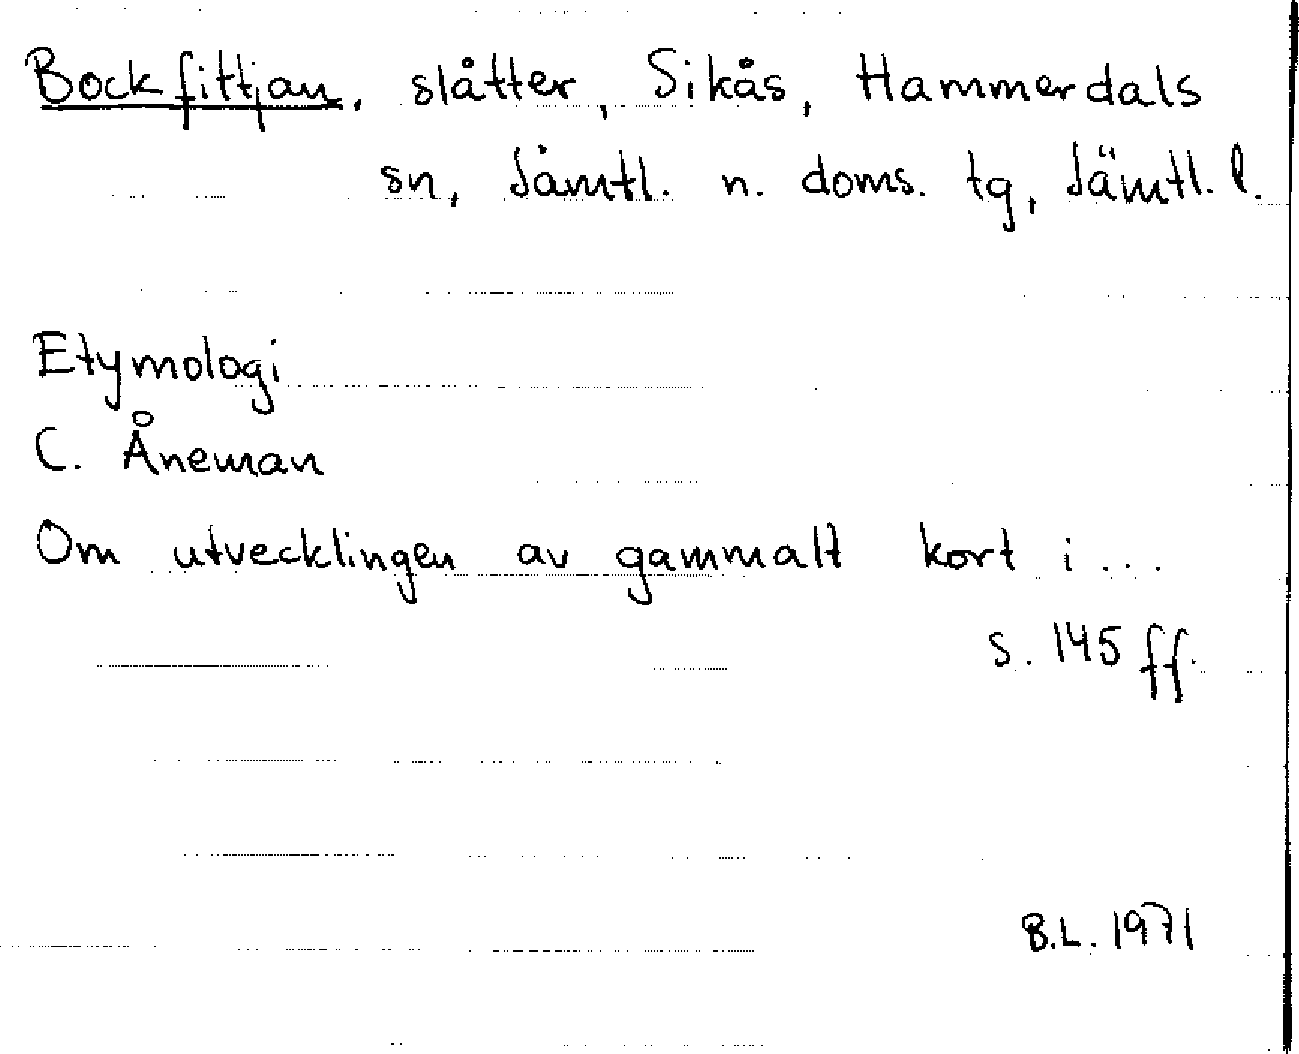 Bockfittjan, slåtter, Sikås, Hammerdals
sn, Jämtl. n. doms. tg, Jämtl. l.
Etymologi
C. Åneman
Om utvecklingen av gammalt kort i...
s. 145 ff.
B.L. 1971